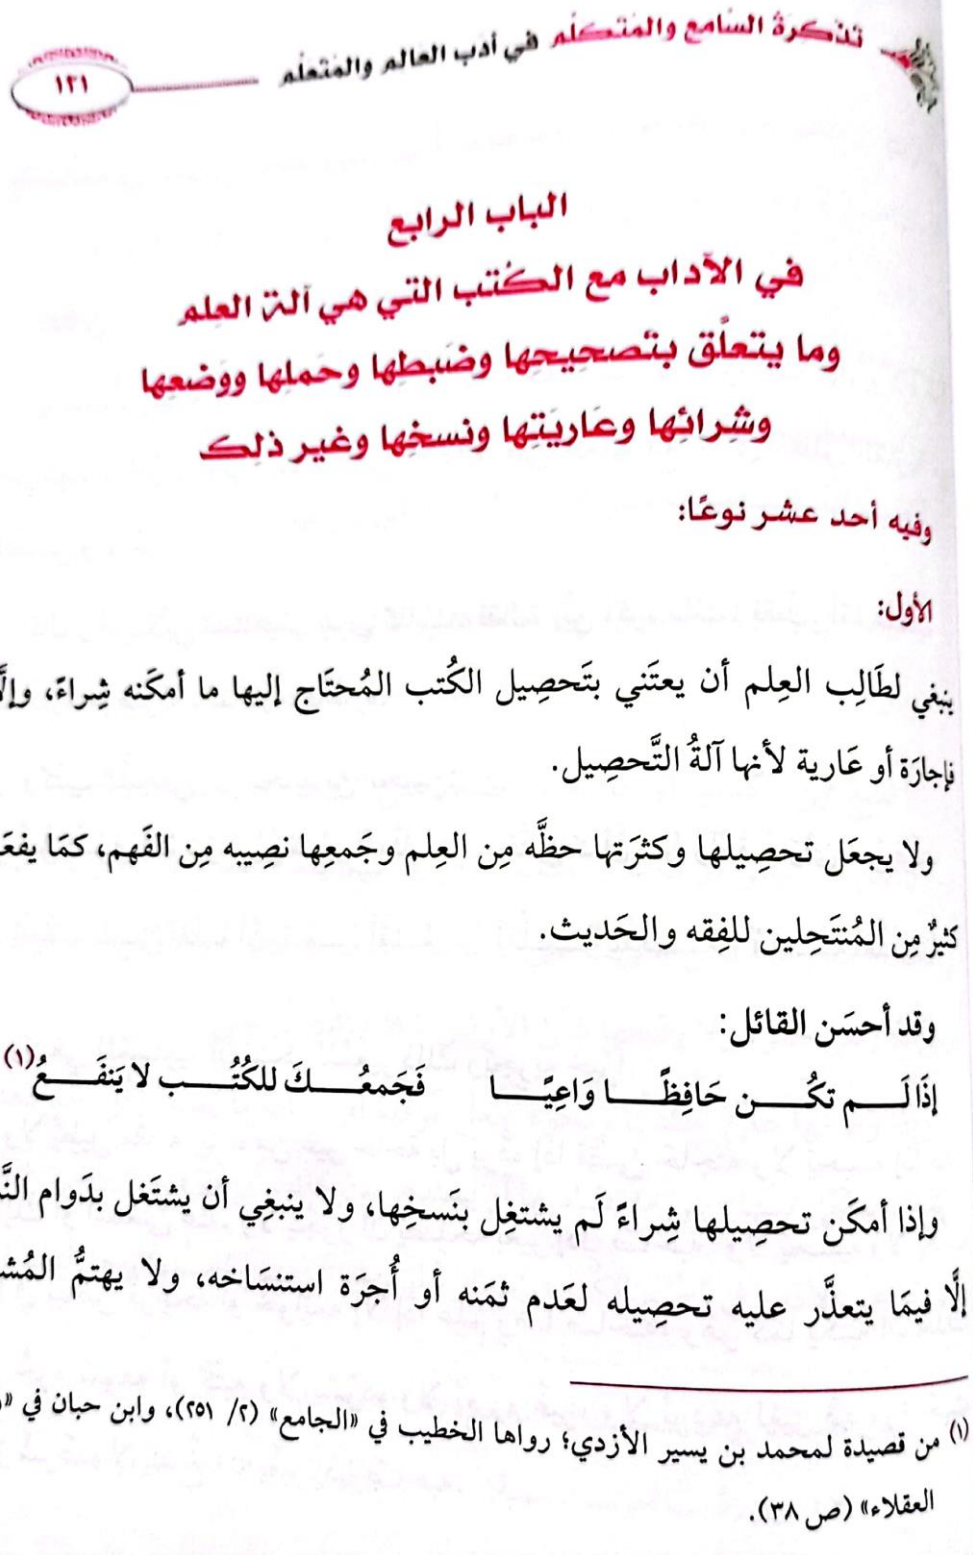 تذكرة السامع والمتكلم في أدب العالم والمتعلم
١٢١
الباب الرابع
في الآداب مع الكتب التي هي آلة العِلم
وما يتعلَّق بتَصحِيحِها وضَبطِها وحَملِها ووَضعِها
وشِرائِها وعَاريَتِها ونسخِها وغير ذلِك
وفيه أحد عشر نوعًا:
الأول:
ينبغي لطَالِب العِلم أن يعتَني بتَحصِيل الكُتب المُحتَاج إليها ما أمكَنه شِراءً، وإلَّا
فإجارَة أو عَارية لأنها آلةُ التَّحصِيل.
ولا يجعَل تحصِيلها وكثرَتها حظَّه مِن العِلم وجَمعِها نصِيبه مِن الفَهم، كمَا يفعَ
كثيرٌ مِن المُنتَحِلين للفِقه والحَديث.
وقد أحسَن القائل:
إذَا لَـم تكُـن حَافِظًـا وَاعِيًـا فَجَمعُـكَ للكُتُـب لا يَنفَـعُ(١)
وإذا أمكَن تحصِيلها شِراءً لَم يشتغِل بنَسخِها، ولا ينبغِي أن يشتَغل بدَوام
إلَّا فيمَا يتعذَّر عليه تحصِيله لعَدم ثمَنه أو أُجرَة استنسَاخه، ولا يهتمُّ
(١) من قصيدة لمحمد بن يسير الأزدي؛ رواها الخطيب في «الجامع» (٢/ ٢٥١)، وابن حبان في
العقلاء» (ص ٣٨).